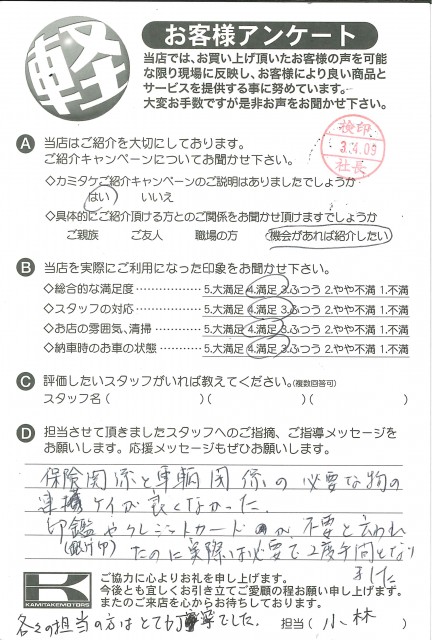 軽
お客様アンケート
当店では、お買い上げ頂いたお客様の声を可能
な限り現場に反映し、お客様により良い商品と
サービスを提供する事に努めています。
大変お手数ですが是非お声をお聞かせ下さい。
検印
3.4.09
社長
A 当店はご紹介を大切にしております。
ご紹介キャンペーンについてお聞かせ下さい。
◇カミタケご紹介キャンペーンのご説明はありましたでしょうか
はい いいえ
◇具体的にご紹介頂ける方とのご関係をお聞かせ頂けますでしょうか
ご親族 ご友人 職場の方 機会があれば紹介したい
B 当店を実際にご利用になった印象をお聞かせ下さい。
◇総合的な満足度 ……………… 5.大満足 4.満足 3.ふつう 2.やや不満 1.不満
◇スタッフの対応 ……………… 5.大満足 4.満足 3.ふつう 2.やや不満 1.不満
◇お店の雰囲気、清掃 ………… 5.大満足 4.満足 3.ふつう 2.やや不満 1.不満
◇納車時のお車の状態 ………… 5.大満足 4.満足 3.ふつう 2.やや不満 1.不満
C 評価したいスタッフがいれば教えてください。(複数回答可)
スタッフ名 ( )( )( )
D 担当させて頂きましたスタッフへのご指摘、ご指導メッセージを
お願いします。応援メッセージもぜひお願いします。
保険関係と車輌関係の必要な物の
連携ケイが良くなかった。
印鑑やクレジットカードが、不要と言われ
(銀行印)
たのに実際は必要で2度手間となり
ました
KAMITAKEMOTORS
ご協力に心よりお礼を申し上げます。
今後とも宜しくお引き立てご愛顧の程お願い申し上げます。
またのご来店を心からお待ちしております。
各々の担当の方はとても丁寧でした。
担当 ( 小林 )